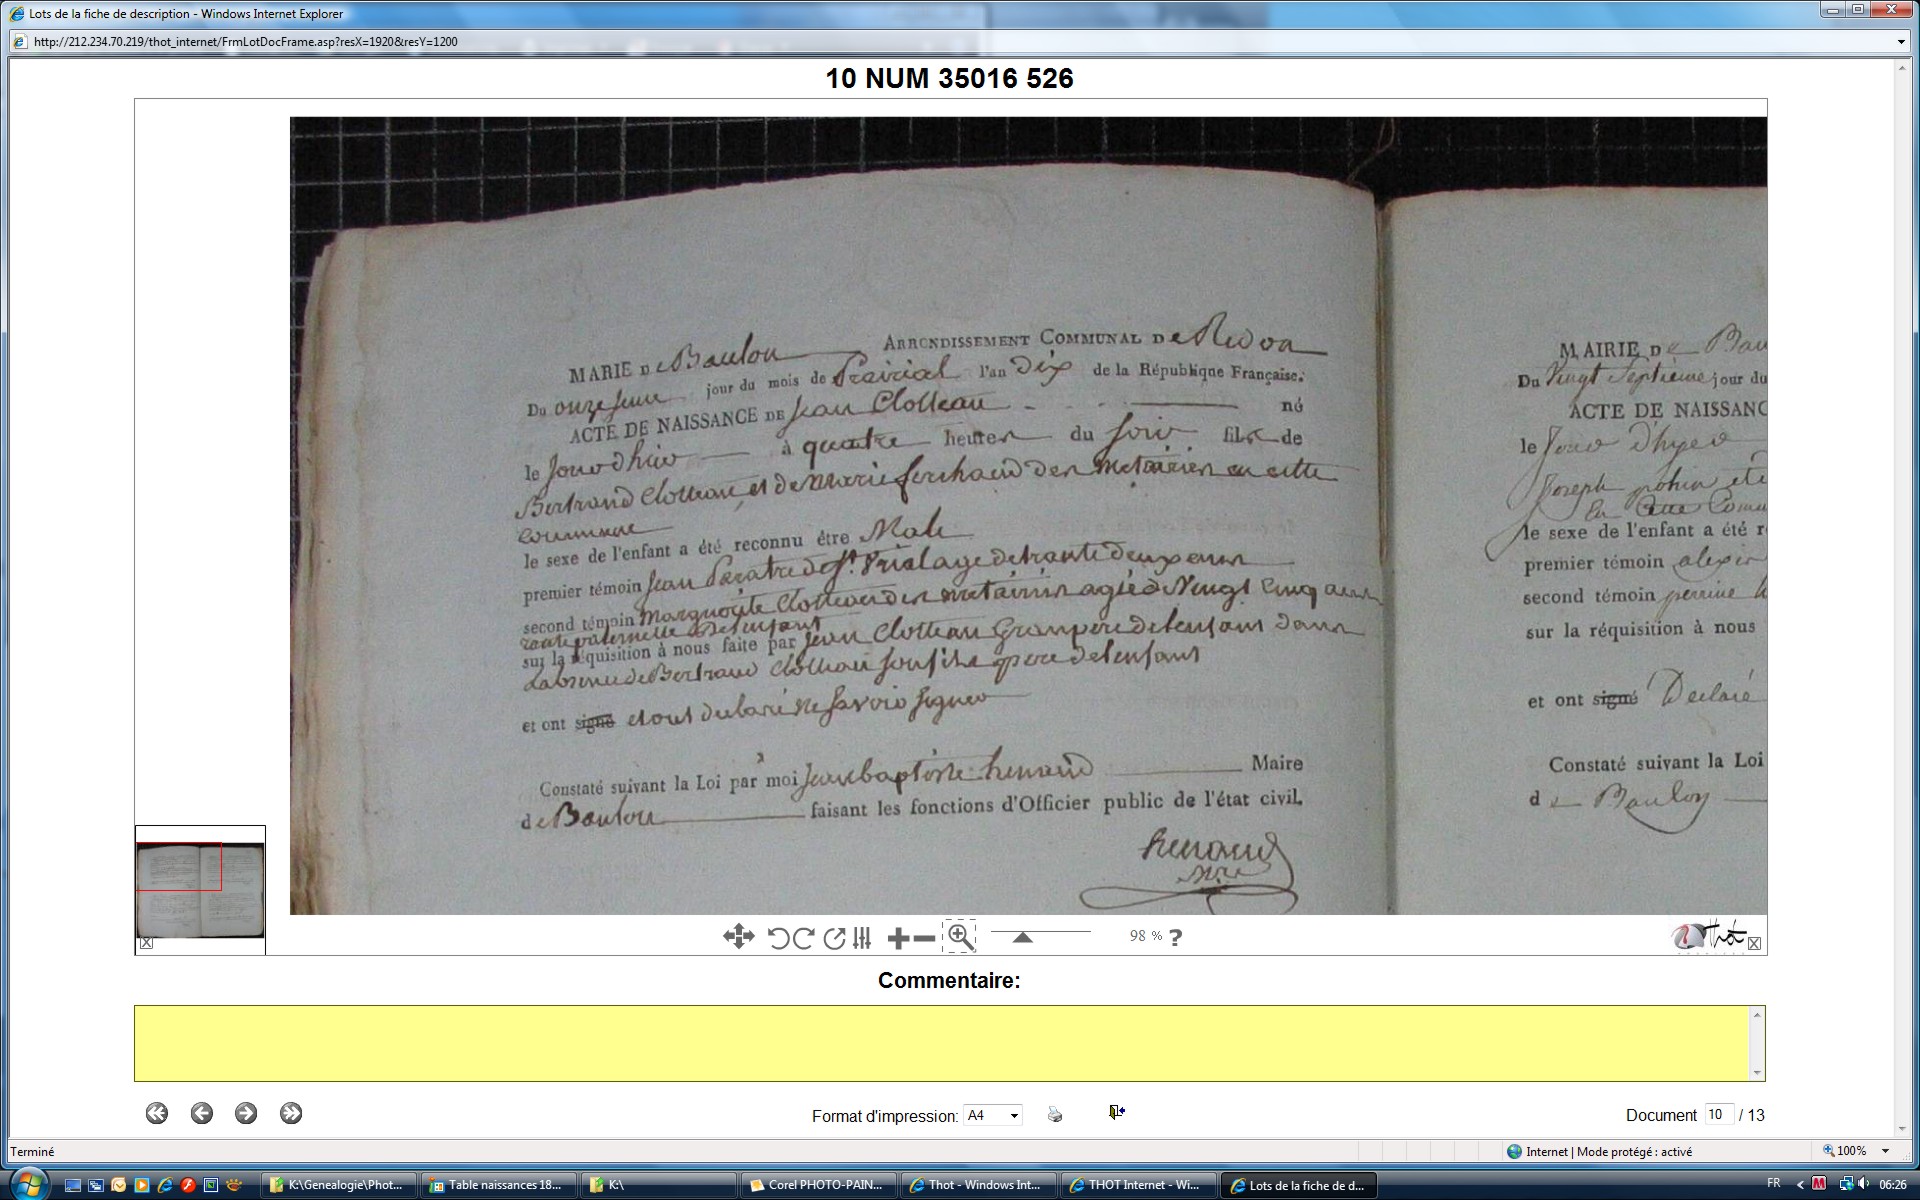 Lots de la fiche de description - Windows Internet Explorer
http://212.234.70.219/thot_internet/FrmLotDocFrame.asp?resX=1920&resY=1200
10 NUM 35016 526
MARIE De Baulon ARRONDISSEMENT COMMUNAL De Redon
Du onziesme jour du mois de Prairial l'an Dix de la République Française.
ACTE DE NAISSANCE DE Jean Clotteau né
le Jour d'hier à quatre heures du soir fils de
Bertrand Clotteau et de Marie ferchaud des metairies en cette
commune
le sexe de l'enfant a été reconnu être Male
premier témoin Jean de St. agé de trante deux ans
second témoin Marguerite Clotteau des metairies agée de Vingt Cinq ans
tante paternelle de l'enfant
sur la réquisition à nous faite par Jean Clotteau Granpere de l'enfant dans
de Bertrand Clotteau son fils pere de l'enfant
et ont signé et ont declaré ne savoir signer
Constaté suivant la Loi par moi Jean baptiste henaud Maire
de Baulon faisant les fonctions d'Officier public de l'état civil.
henaud
MAIRIE De Bau
Du Vingt Septieme jour du
ACTE DE NAISSANC
le Jour d'hyer
Joseph
En Cette Comu
le sexe de l'enfant a été r
premier témoin alexis
second témoin perrine
sur la réquisition à nous
et ont signé Declaré
Constaté suivant la Loi
de Baulon
98 % ?
Thot
Commentaire:
Format d'impression: A4
Document 10 / 13
Terminé
Internet | Mode protégé : activé
100%
K:\Genealogie\Phot...
Table naissances 18...
K:\
Corel PHOTO-PAIN...
Thot - Windows Int...
THOT Internet - Wi...
Lots de la fiche de d...
FR
06:26